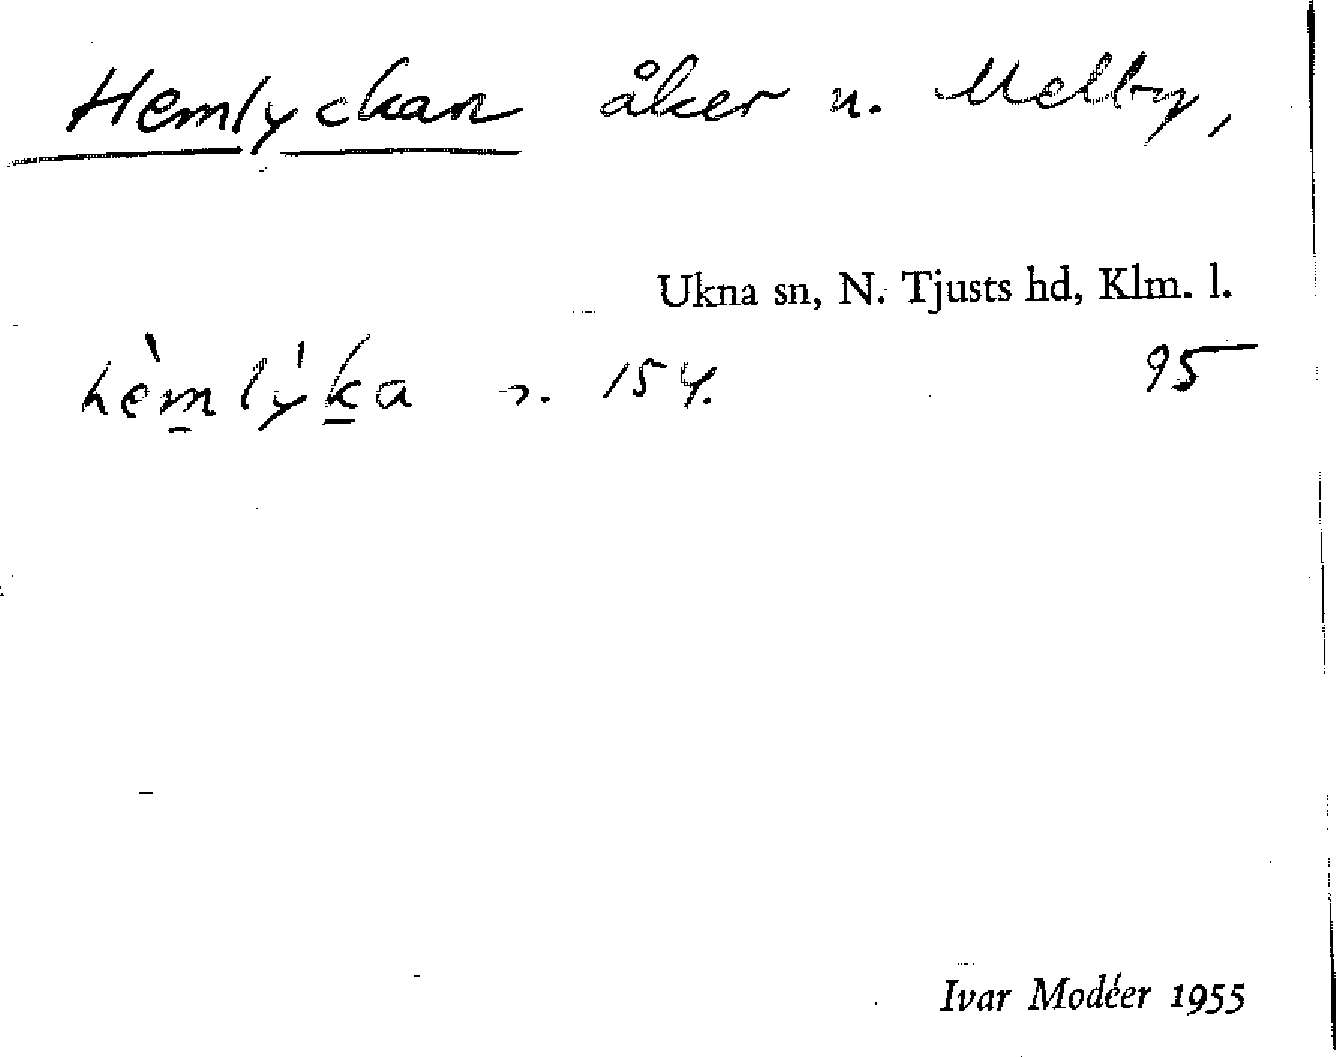 Hemlyckan åker u. Melby,
Ukna sn, N. Tjusts hd, Klm. l.
hèmlýka n. 154. 95
Ivar Modéer 1955